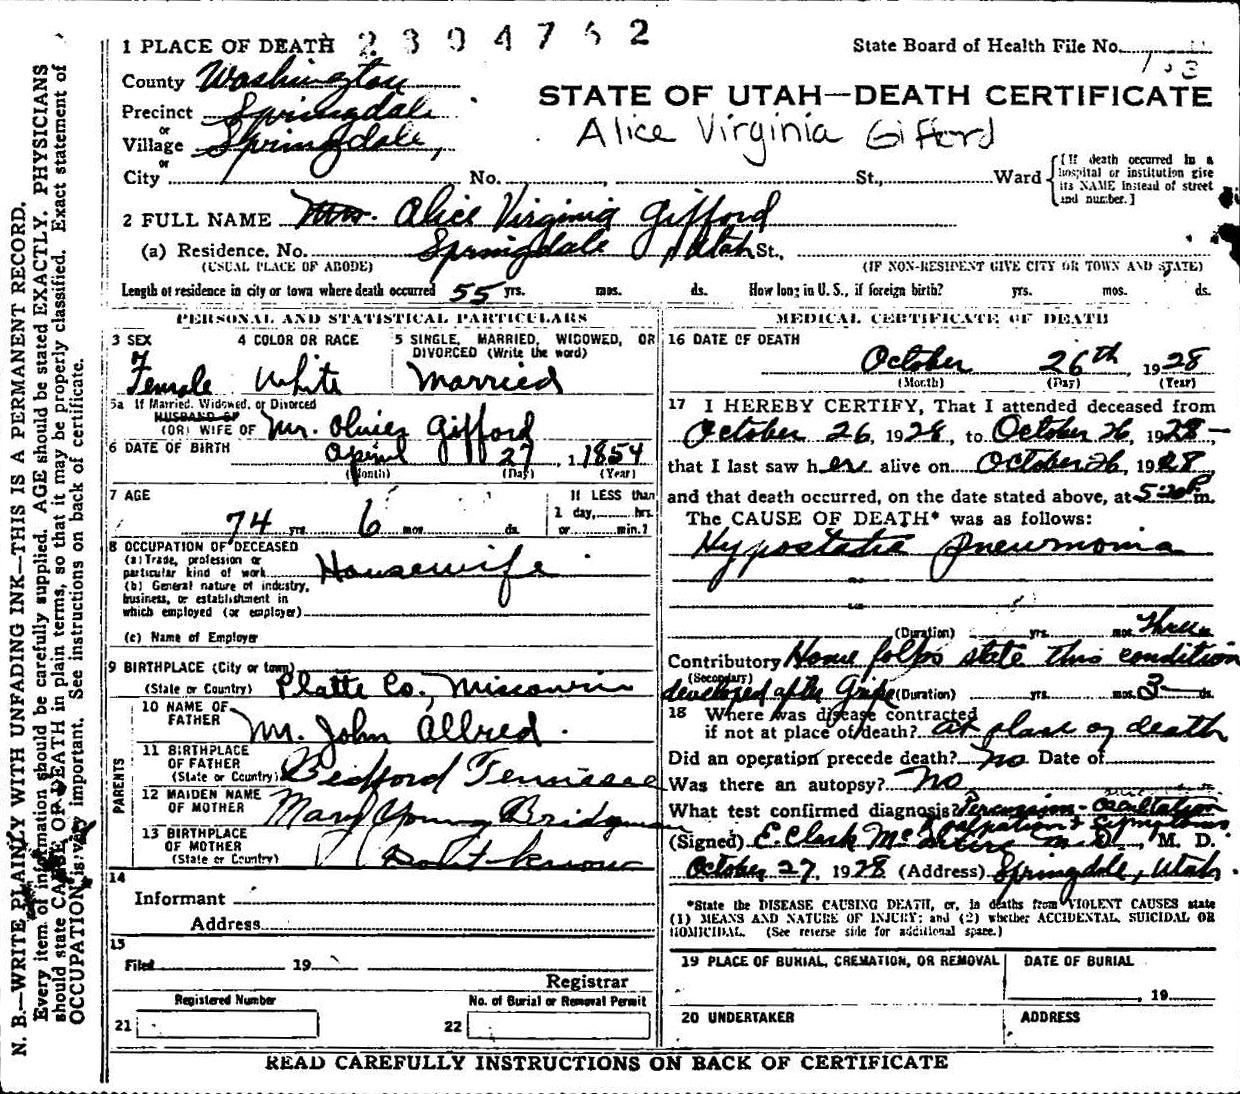 1 PLACE OF DEATH 2304762
State Board of Health File No.
County Washington
Precinct Springdale
or
Village Springdale,
or
STATE OF UTAH—DEATH CERTIFICATE
Alice Virginia Gifford
City No. St., Ward
[If death occurred in a hospital or institution give its NAME instead of street and number.]
2 FULL NAME Mrs. Alice Virginia Gifford
(a) Residence, No. Springdale, Utah St.,
(USUAL PLACE OF ABODE) (IF NON-RESIDENT GIVE CITY OR TOWN AND STATE)
Length of residence in city or town where death occurred 55 yrs. mos. ds. How long in U. S., if foreign birth? yrs. mos. ds.
PERSONAL AND STATISTICAL PARTICULARS
3 SEX 4 COLOR OR RACE 5 SINGLE, MARRIED, WIDOWED, OR DIVORCED (Write the word)
Female White Married
5a If Married, Widowed, or Divorced
HUSBAND OF
(OR) WIFE OF Mr. Oliver Gifford
6 DATE OF BIRTH April 27, 1854
(Month) (Day) (Year)
7 AGE If LESS than
1 day, hrs.
74 yrs. 6 mos. ds. or min.?
8 OCCUPATION OF DECEASED
(a) Trade, profession or
particular kind of work Housewife
(b) General nature of industry,
business, or establishment in
which employed (or employer)
(c) Name of Employer
9 BIRTHPLACE (City or town)
(State or Country) Platte Co., Missouri
PARENTS
10 NAME OF
FATHER Mr. John Allred.
11 BIRTHPLACE
OF FATHER
(State or Country) Bedford Tennessee
12 MAIDEN NAME
OF MOTHER Mary Young Bridgman
13 BIRTHPLACE
OF MOTHER
(State or Country) Don't know
14
Informant
Address
15
Filed 19
Registrar
Registered Number No. of Burial or Removal Permit
21 22
MEDICAL CERTIFICATE OF DEATH
16 DATE OF DEATH
October 26th, 1928
(Month) (Day) (Year)
17 I HEREBY CERTIFY, That I attended deceased from
October 26, 1928, to October 26, 1928
that I last saw her alive on October 26, 1928,
and that death occurred, on the date stated above, at 5:20 P m.
The CAUSE OF DEATH* was as follows:
Hypostatic pneumonia
(Duration) yrs. mos. Three
Contributory Home folks state this condition
(Secondary)
developed after Gripe (Duration) yrs. mos. 3 ds.
18 Where was disease contracted
if not at place of death? at place of death
Did an operation precede death? No Date of
Was there an autopsy? No
What test confirmed diagnosis? Percussion - Oscultation
palpation & Symptoms
(Signed) E. Clark McIntire M. D., M. D.
October 27, 1928 (Address) Springdale, Utah.
*State the DISEASE CAUSING DEATH, or, in deaths from VIOLENT CAUSES state
(1) MEANS AND NATURE OF INJURY; and (2) whether ACCIDENTAL, SUICIDAL OR
HOMICIDAL. (See reverse side for additional space.)
19 PLACE OF BURIAL, CREMATION, OR REMOVAL DATE OF BURIAL
, 19
20 UNDERTAKER ADDRESS
READ CAREFULLY INSTRUCTIONS ON BACK OF CERTIFICATE
N. B.—WRITE PLAINLY WITH UNFADING INK—THIS IS A PERMANENT RECORD.
Every item of information should be carefully supplied. AGE should be stated EXACTLY. PHYSICIANS
should state CAUSE OF DEATH in plain terms, so that it may be properly classified. Exact statement of
OCCUPATION is very important. See instructions on back of certificate.